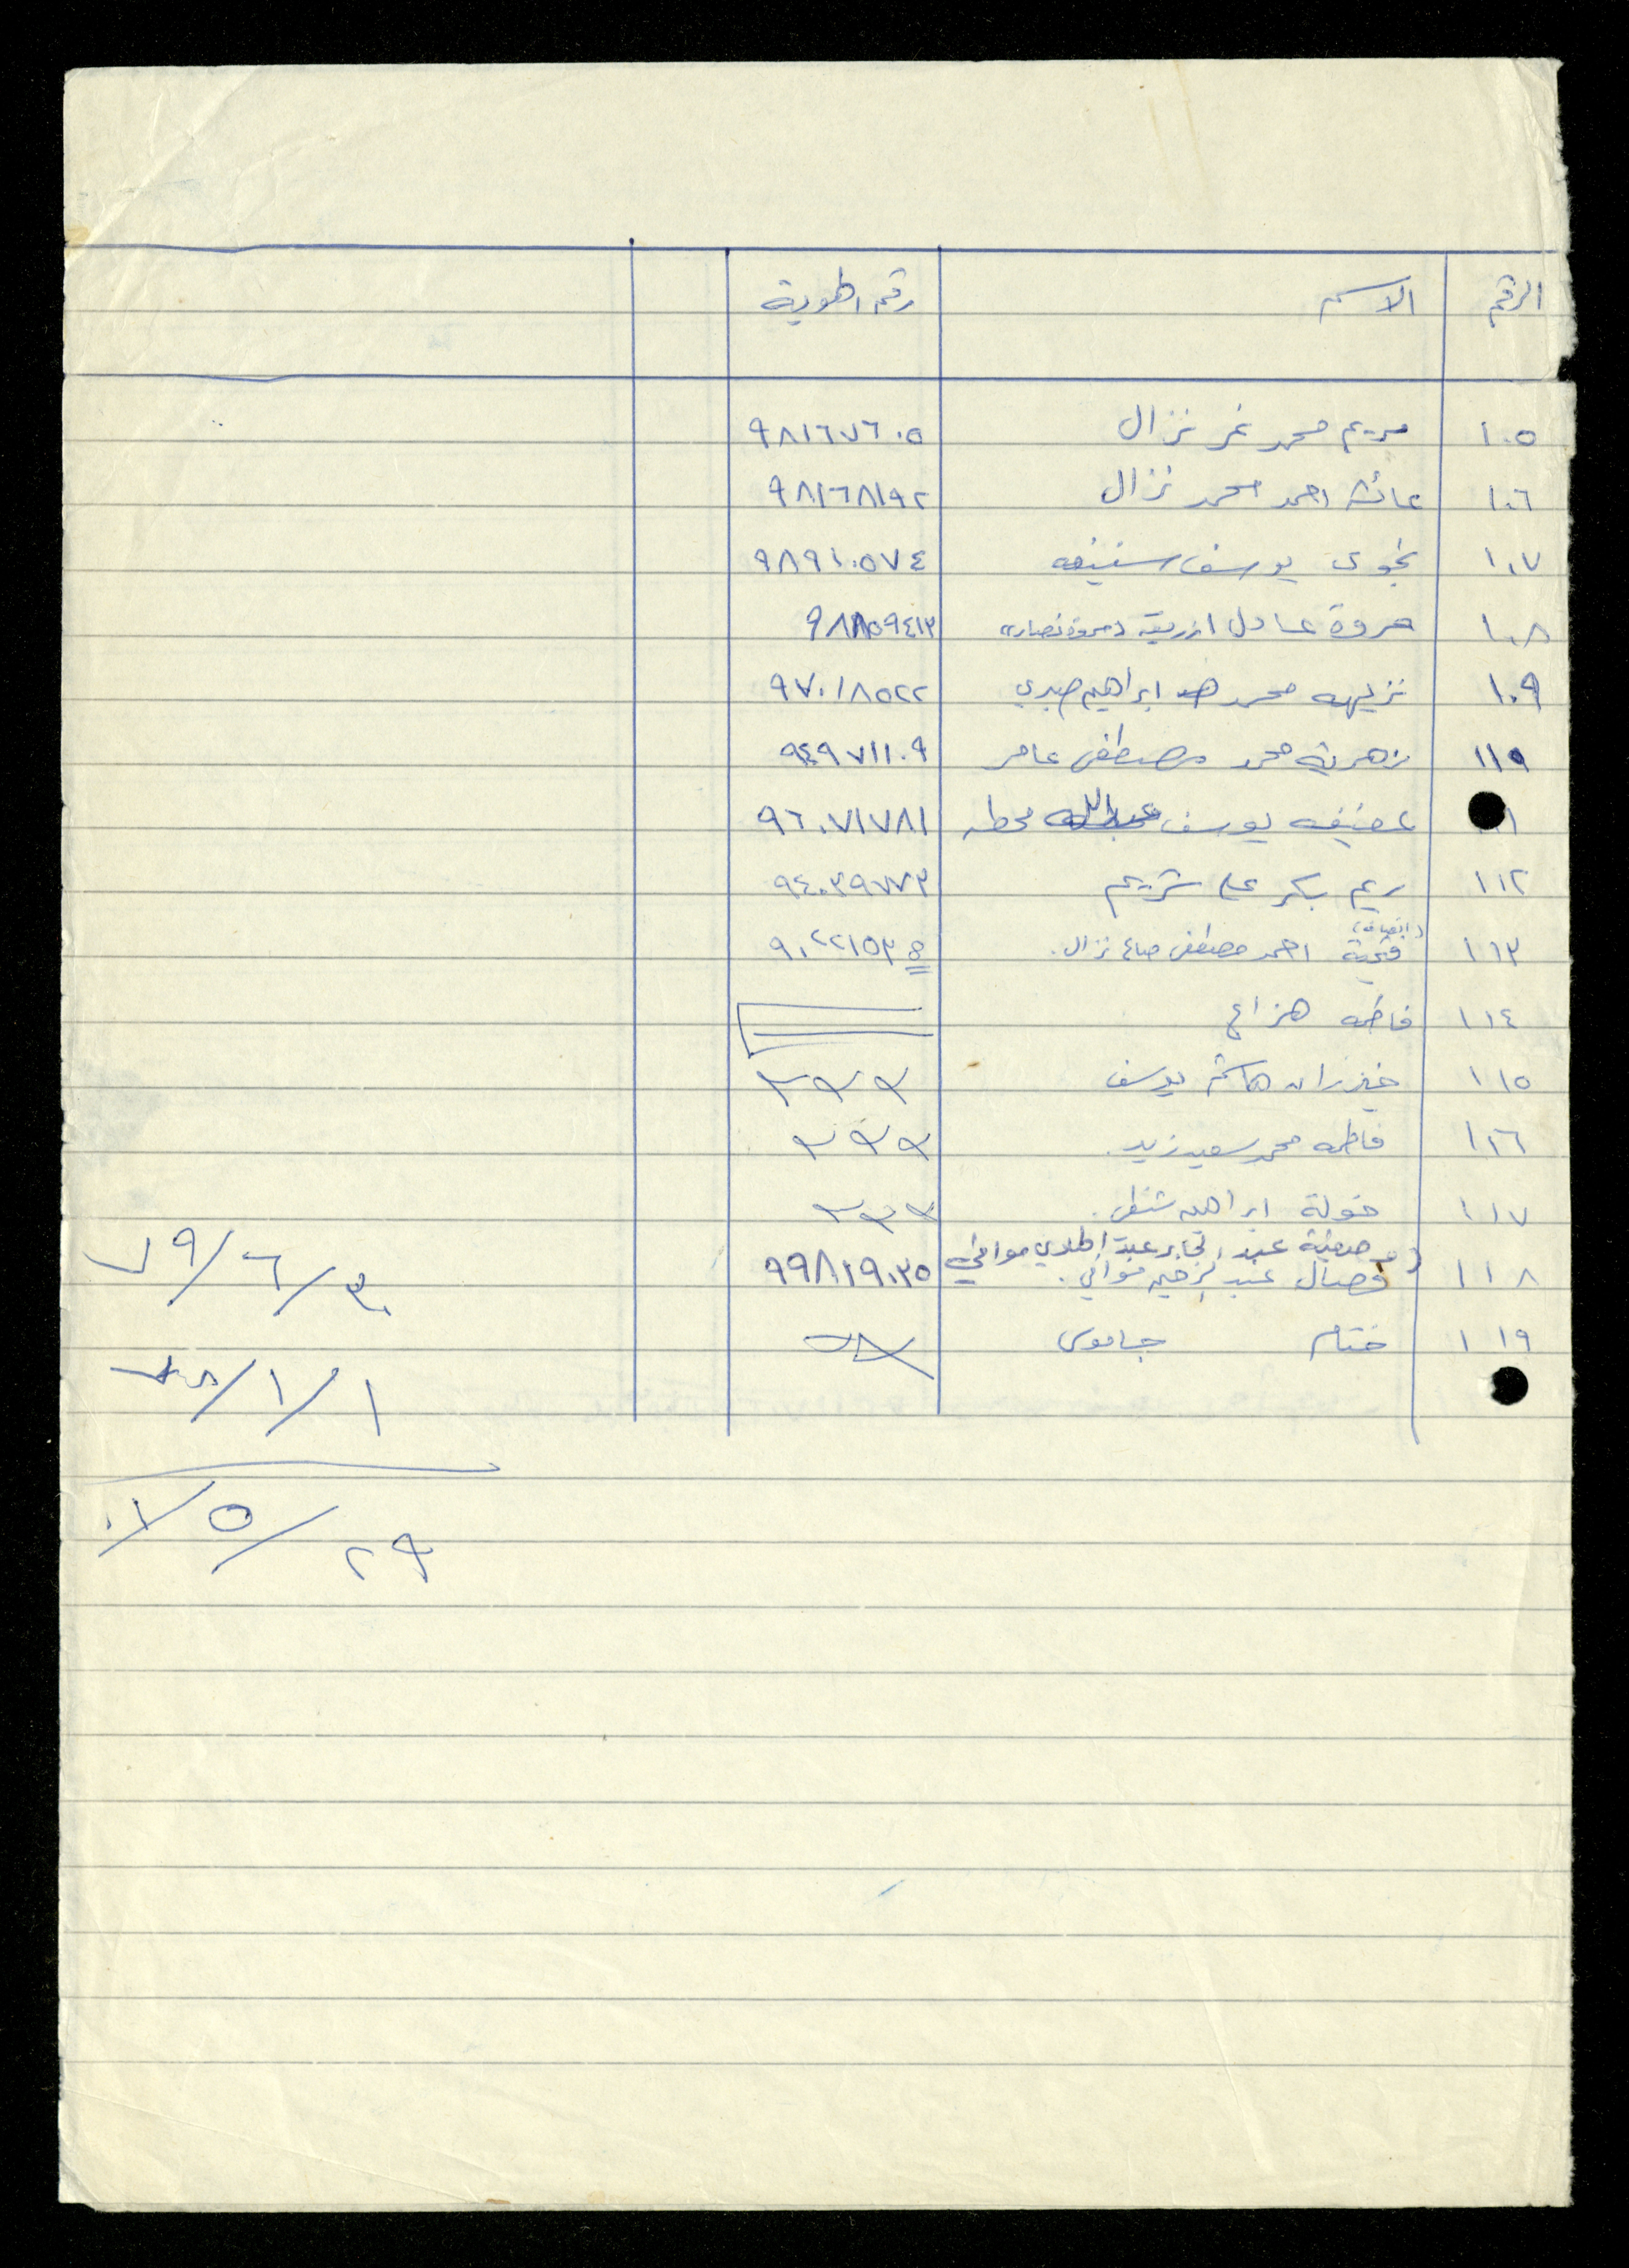 الرقم الاسم رقم الهوية
١٠٥ مريم محمد نمر نزال ٩٨١٦٧٦٠٥
١٠٦ عائشه احمد محمد نزال ٩٨١٦٨١٩٢
١٠٧ نجوى يوسف سنيفه ٩٨٩١٠٥٧٤
١٠٨ مروة عادل ازريقه (مروة نصار) ٩٨٨٥٩٤١٣
١٠٩ نزيهه محمد ابراهيم صبري ٩٧٠١٨٥٢٢
١١٠ زهرية محمد مصطفى عامر ٩٤٩٧١١٠٩
١ عفيفه يوسف عبدالله محطه ٩٦٠٧١٧٨١
١١٢ ريم بكر علي شريم ٩٤٠٣٩٧٧٣
(انصاف)
١١٣ فتحية احمد مصطفى صالح نزال. ٩٠٢٢١٥٣٥
١١٤ فاطمه هزاع
١١٥ خيزران هاشم يوسف
١١٦ فاطمه محمد سعيد زيد.
١١٧ خولة ابراهيم شنطي.
صفية عبد عبد الهادي موافي
١١٨ وصال عبد الرحيم موافي. ٩٩٨١٩٠٣٥
١١٩ ختام جاموس
٧٩/٦/٣٠
٧٨/١/١
٠١/٥/٢٩